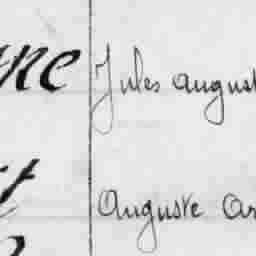 Jules August
Auguste ar